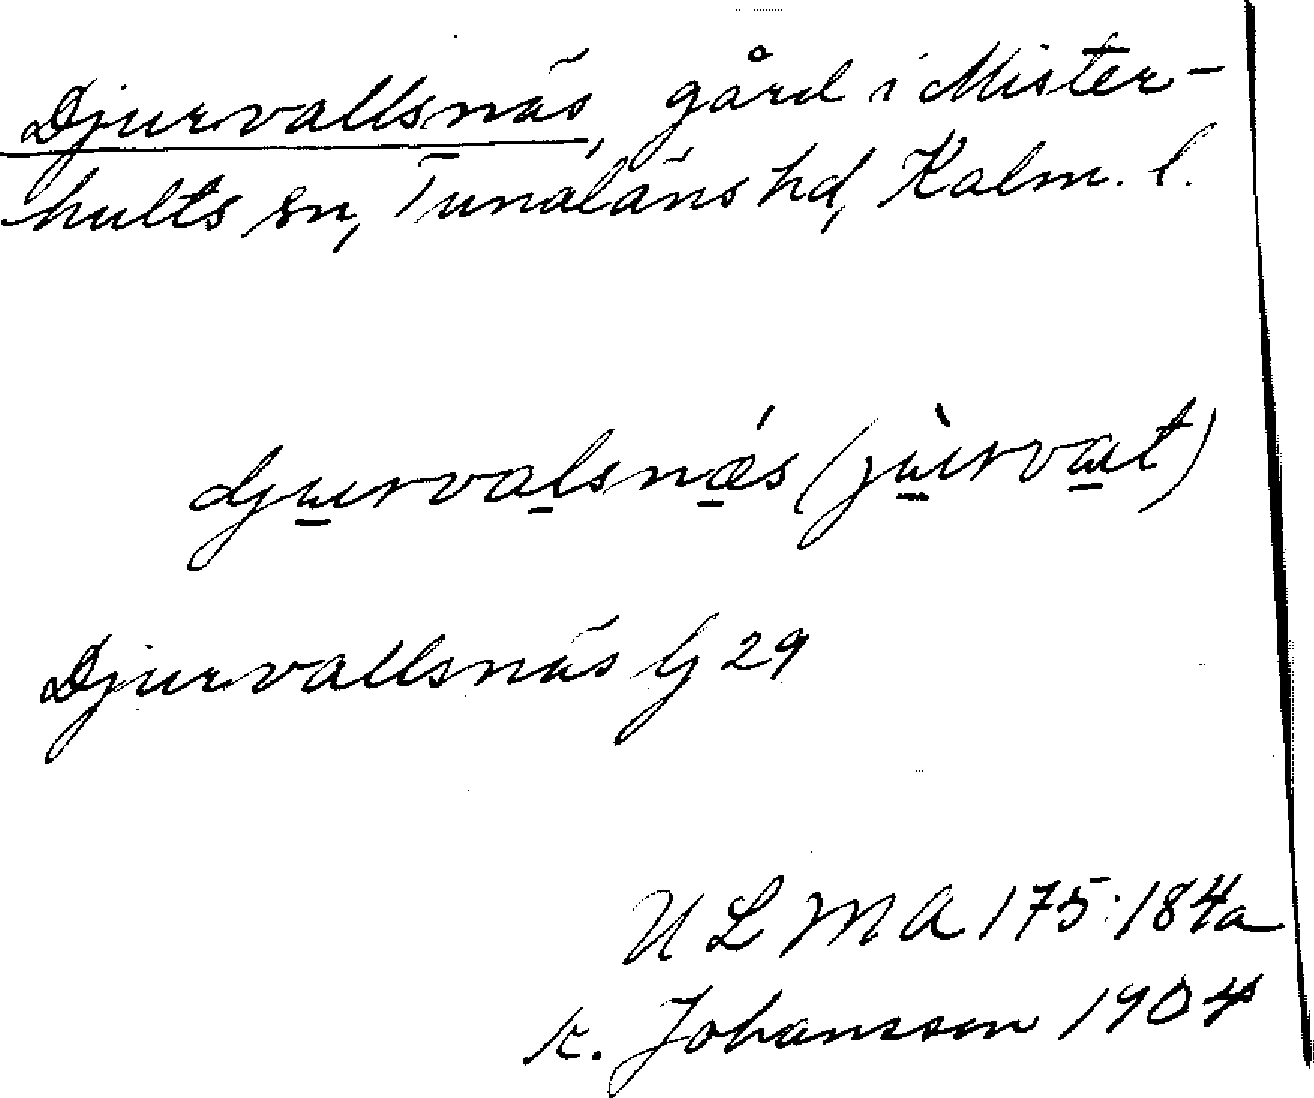 Djurvallsnäs, gård i Mister-
hults sn, Tunaläns hd, Kalm. l.
djurvalsnǽs (jùrvat)
Djurvallsnäs Gj 29
ULMA 175:184a
K. Johansson 1904